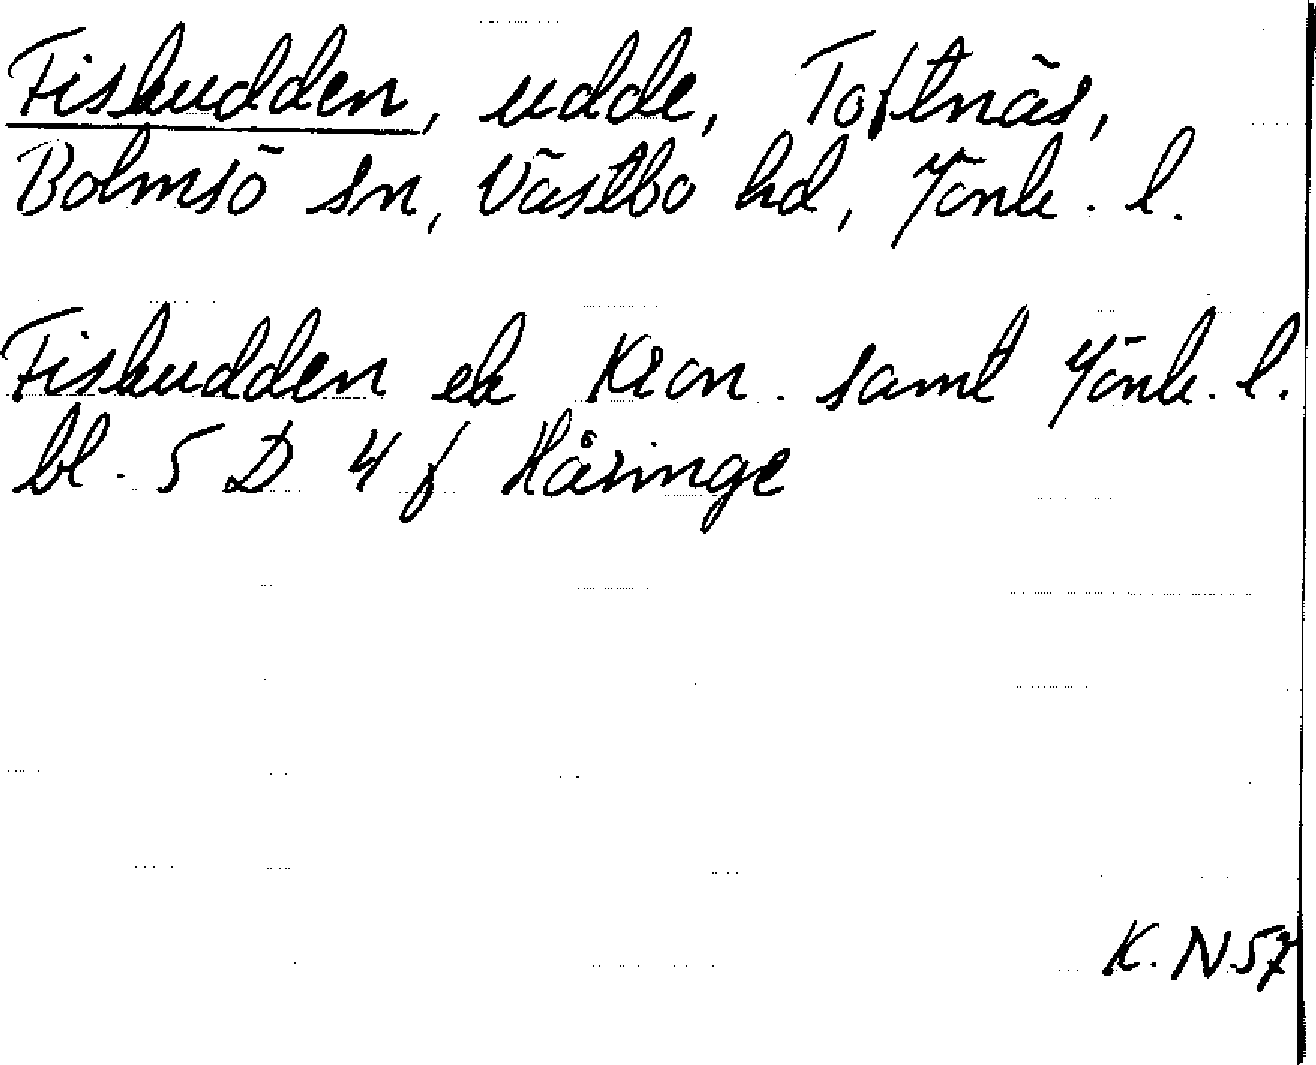 Fiskudden, udde, Toftnäs,
Bolmsö sn, Västbo hd, Jönk. l.
Fiskudden ek Kron. samt Jönk. l.
bl. 5 D 4 f Håringe
K. N. 57